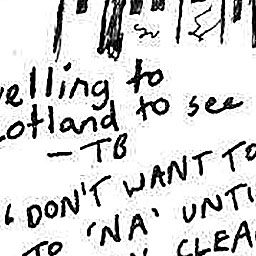 elling to
cotland to see
— TB
" DON'T WANT TO
TO 'NA' UNTI
CLEA